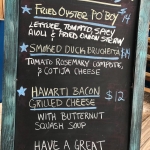 FRIED OYSTER PO'BOY $14
LETTUCE, TOMATO, SPICY
AIOLI & FRIED ONION STRAW
SMOKED DUCK BRUCHETTA $14
TOMATO ROSEMARY COMPOTE,
& COTIJA CHEESE
HAVARTI BACON
GRILLED CHEESE $12
WITH BUTTERNUT
SQUASH SOUP
HAVE A GREAT